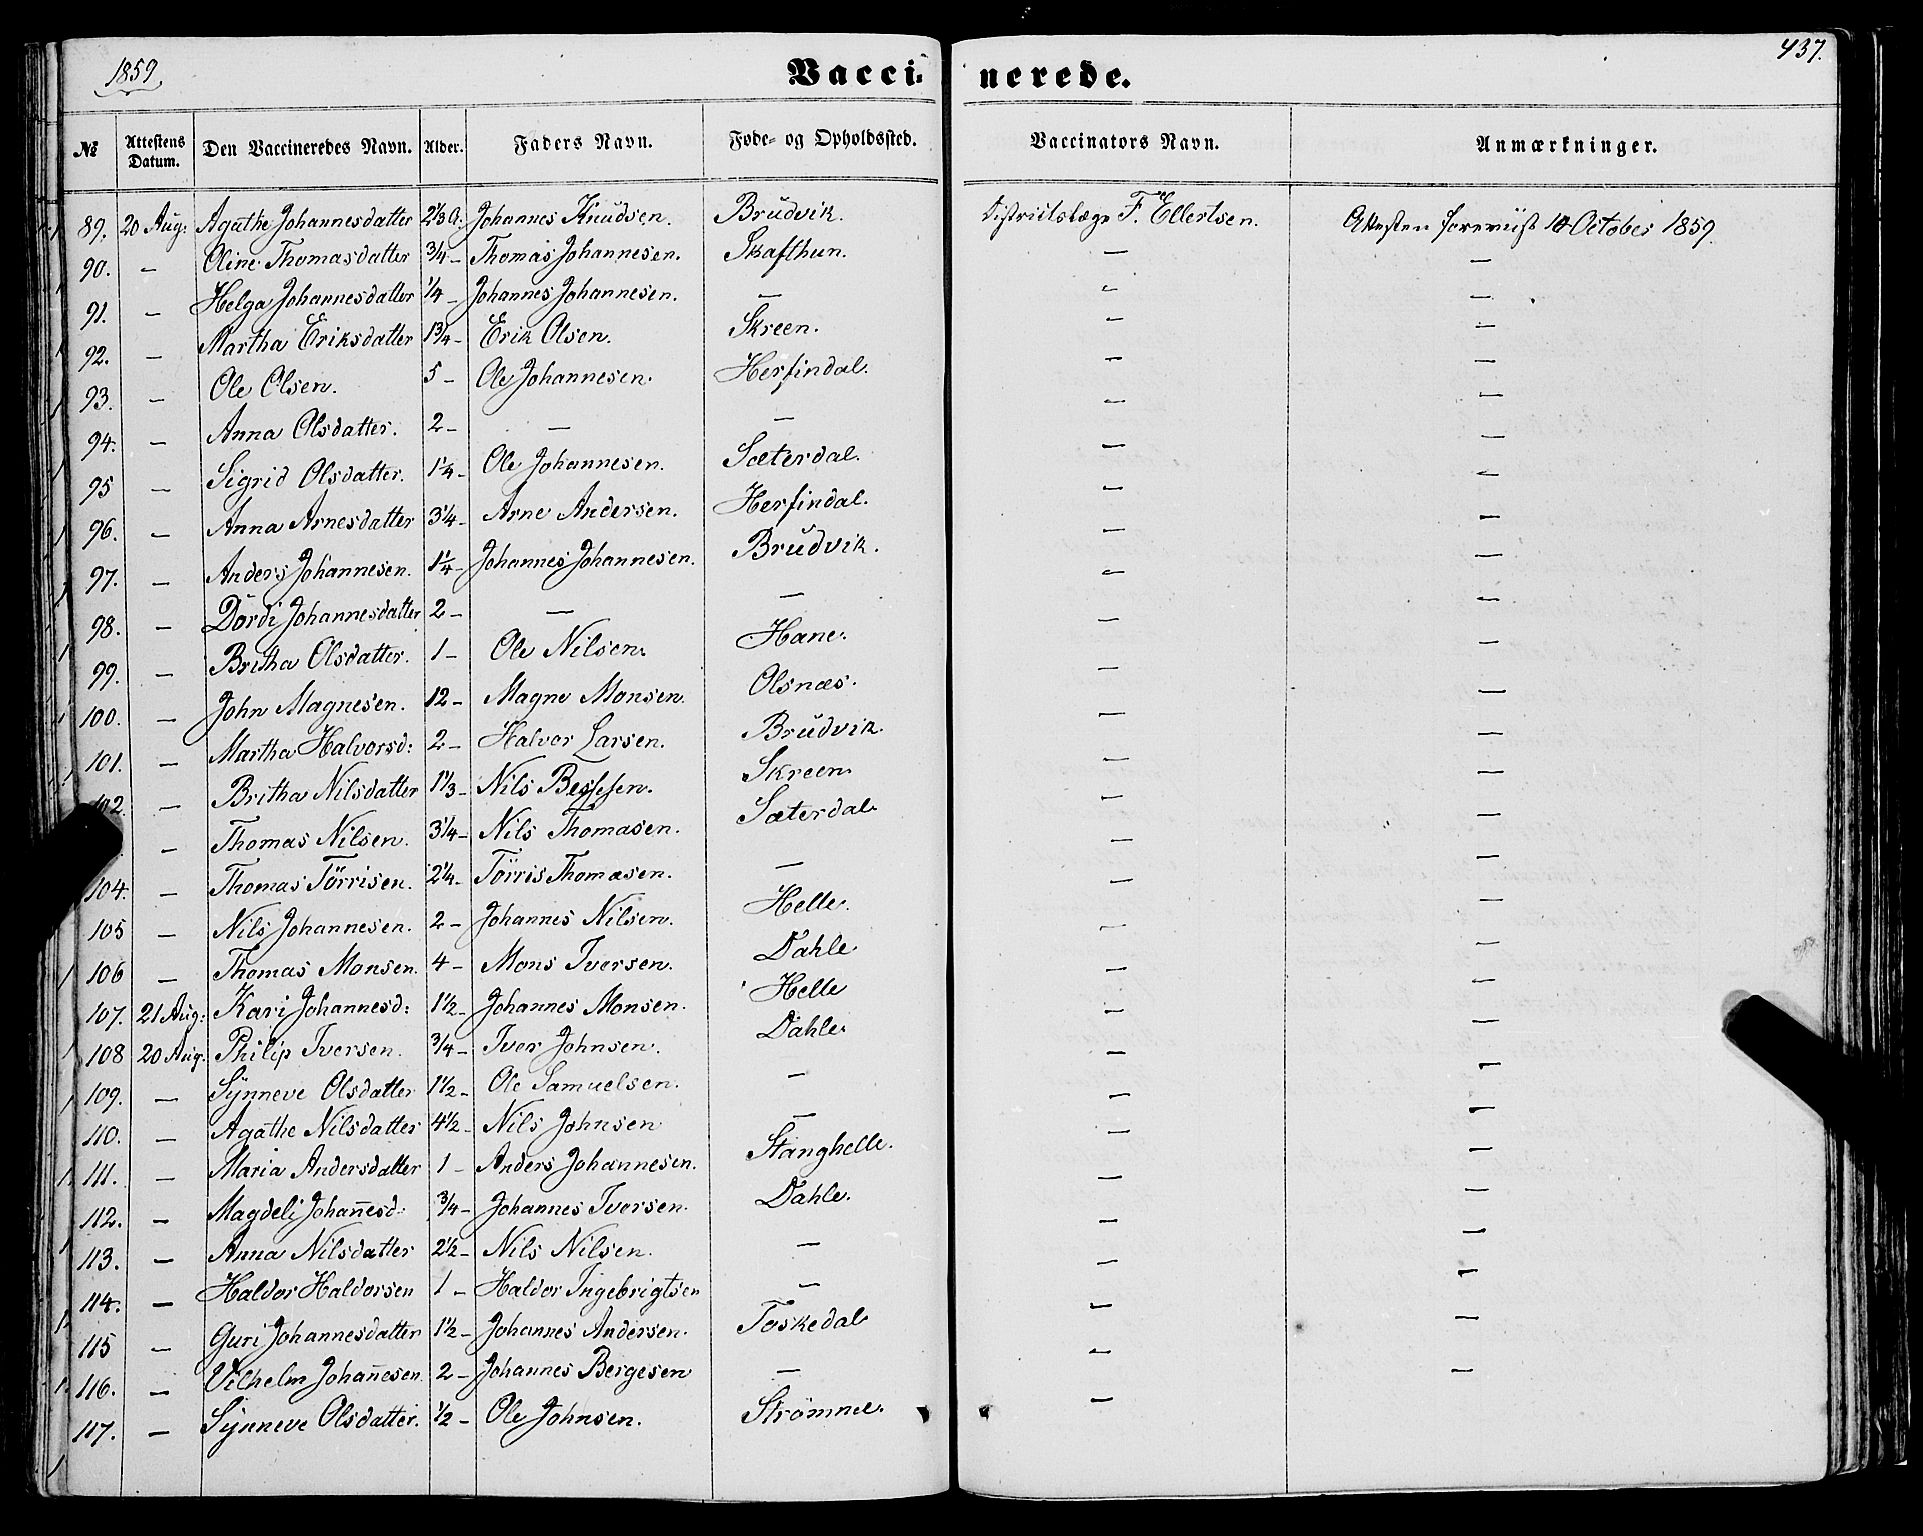 1859.
Vaccinerede.
437.
№ | Attestens Datum. | Den Vaccineredes Navn. | Alder. | Faders Navn. | Føde- og Opholdssted. | Vaccinators Navn. | Anmærkninger.
89. | 20 Aug: | Agathe Johannesdatter | 2⅓ A. | Johannes Knudsen. | Brudvik. | Districtslæge F. Ellertsen. | Attesten foreviist 14 October 1859.
90. | — | Oline Thomasdatter | ¾ — | Thomas Johannesen. | Skafthun. | — | —
91. | — | Helga Johannesdatter | ¼ — | Johannes Johannesen. | — | — | —
92. | — | Martha Eriksdatter | 1¾ — | Erik Olsen. | Skreen. | — | —
93. | — | Ole Olsen. | 5 — | Ole Johannesen. | Herfindal. | — | —
94. | — | Anna Olsdatter. | 2 — | — | — | — | —
95 | — | Sigrid Olsdatter. | 1¼ — | Ole Johannesen. | Sæterdal. | — | —
96. | — | Anna Arnesdatter | 3¼ — | Arne Andersen. | Herfindal. | — | —
97. | — | Anders Johannesen. | 1¼ — | Johannes Johannesen. | Brudvik. | — | —
98. | — | Dördi Johannesdatter | 2 — | — | — | — | —
99. | — | Britha Olsdatter. | 1 — | Ole Nilsen. | Hane. | — | —
100. | — | John Magnesen. | 12 — | Magne Monsen. | Olsnæs. | — | —
101. | — | Martha Halvorsd: | 2 — | Halvor Larsen. | Brudvik. | — | —
102. | — | Britha Nilsdatter | 1⅓ — | Nils Bessesen. | Skreen | — | —
— | Thomas Nilsen. | 3¼ — | Nils Thomasen. | Sæterdal | — | —
104. | — | Thomas Törrisen. | 2¼ — | Törris Thomasen. | — | — | —
105 | — | Nils Johannesen. | 2 — | Johannes Nilsen. | Helle. | — | —
106 | — | Thomas Monsen. | 4 — | Mons Iversen. | Dahle | — | —
107. | 21 Aug: | Kari Johannesd: | 1½ — | Johannes Monsen. | Helle | — | —
108 | 20 Aug: | Philip Iversen. | ¾ — | Iver Johnsen. | Dahle. | — | —
109. | — | Synneve Olsdatter | 1½ — | Ole Samuelsen. | — | — | —
110. | — | Agathe Nilsdatter | 4½ — | Nils Johnsen | — | — | —
111. | — | Maria Andersdatter | 1 — | Anders Johannesen. | Stanghelle. | — | —
112. | — | Magdeli Johan̄esd: | ¾ — | Johannes Iversen. | Dahle. | — | —
113. | — | Anna Nilsdatter | 2½ — | Nils Nilsen. | — | — | —
114. | — | Haldor Haldorsen | 1 — | Haldor Ingebrigtsen | — | — | —
115 | — | Guri Johannesdatter | 1½ — | Johannes Andersen. | Toskedal | — | —
116. | — | Vilhelm Johan̄esen. | 2 — | Johannes Bergesen | — | — | —
117. | — | Synneve Olsdatter. | ½ — | Ole Johnsen. | Strömme. | —